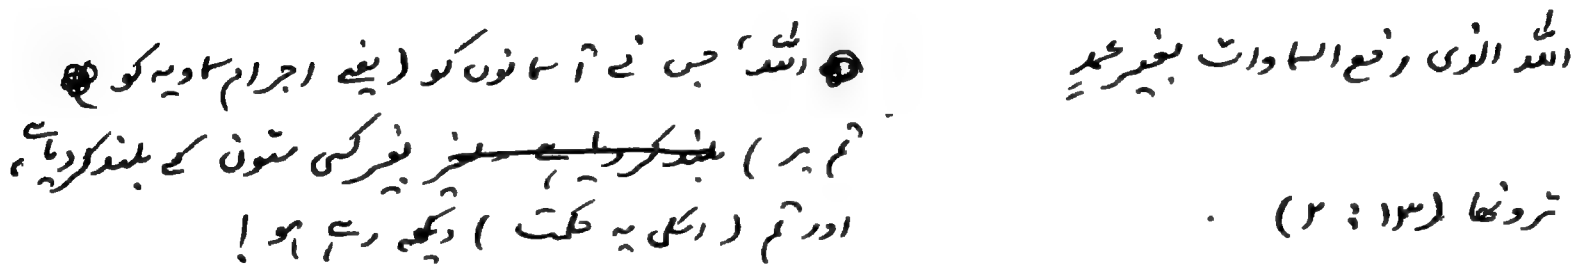 اللہ الذی رفع السماوات بغیر عمدٍ
ترونھا (۱۳ : ۲)
اللہ، جس نے آسمانوں کو (یعنے اجرام سماویہ کو
تم پر) بلند کر دیا ہے بغیر کسی ستون کے بلند کر دیا ہے،
اور تم (اسکی یہ حکمت) دیکھ رہے ہو!